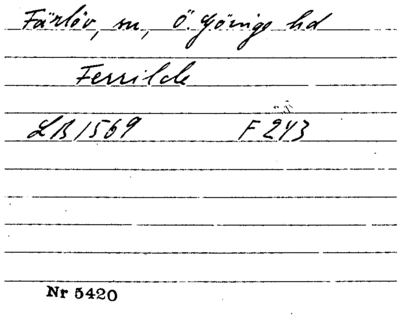 Färlöv, sn, Ö. Göinge hd
Ferrilde
LB 1569 F 243
Nr 5420